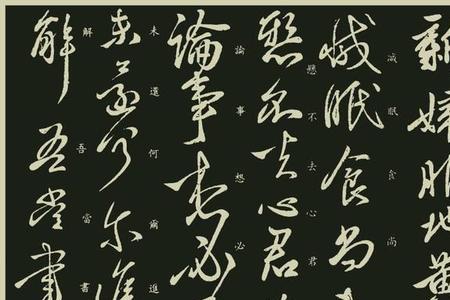 新婦服地黃
減眠食尚
減眠食尚
懸不去心君
懸不去心君
論事想必
論事想必
未還何爾進
未還何爾進
解吾當書
解吾當書